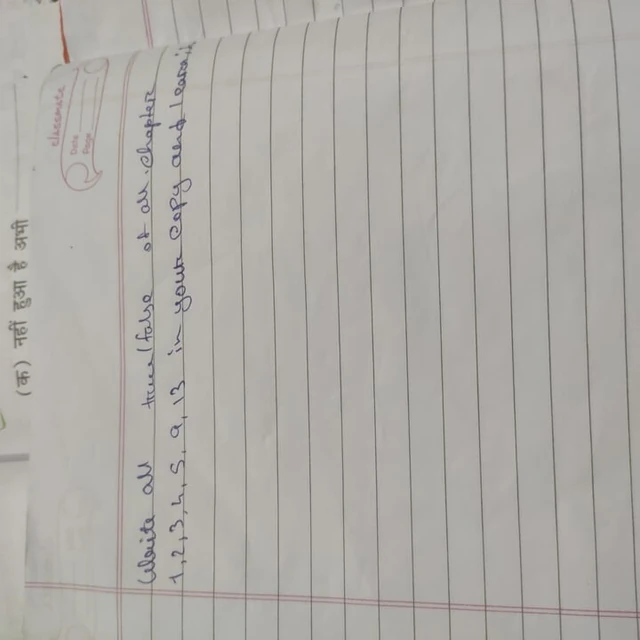 classmate
Date
Page
Write all true/false of all chapter
1,2,3,4,5,9,13 in your copy and learn
(क) नहीं हुआ है अभी